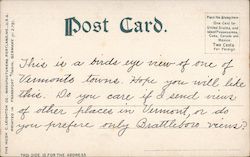 Post Card.
Place the Stamp here
One Cent for
United States and
Island Possessions,
Cuba, Canada and
Mexico.
Two Cents
For Foreign
This is a birds eye view of one of
Vermonts towns. Hope you will like
this. Do you care if I send views
of other places in Vermont, or do
you prefere only Brattleboro views?
THIS SIDE IS FOR THE ADDRESS